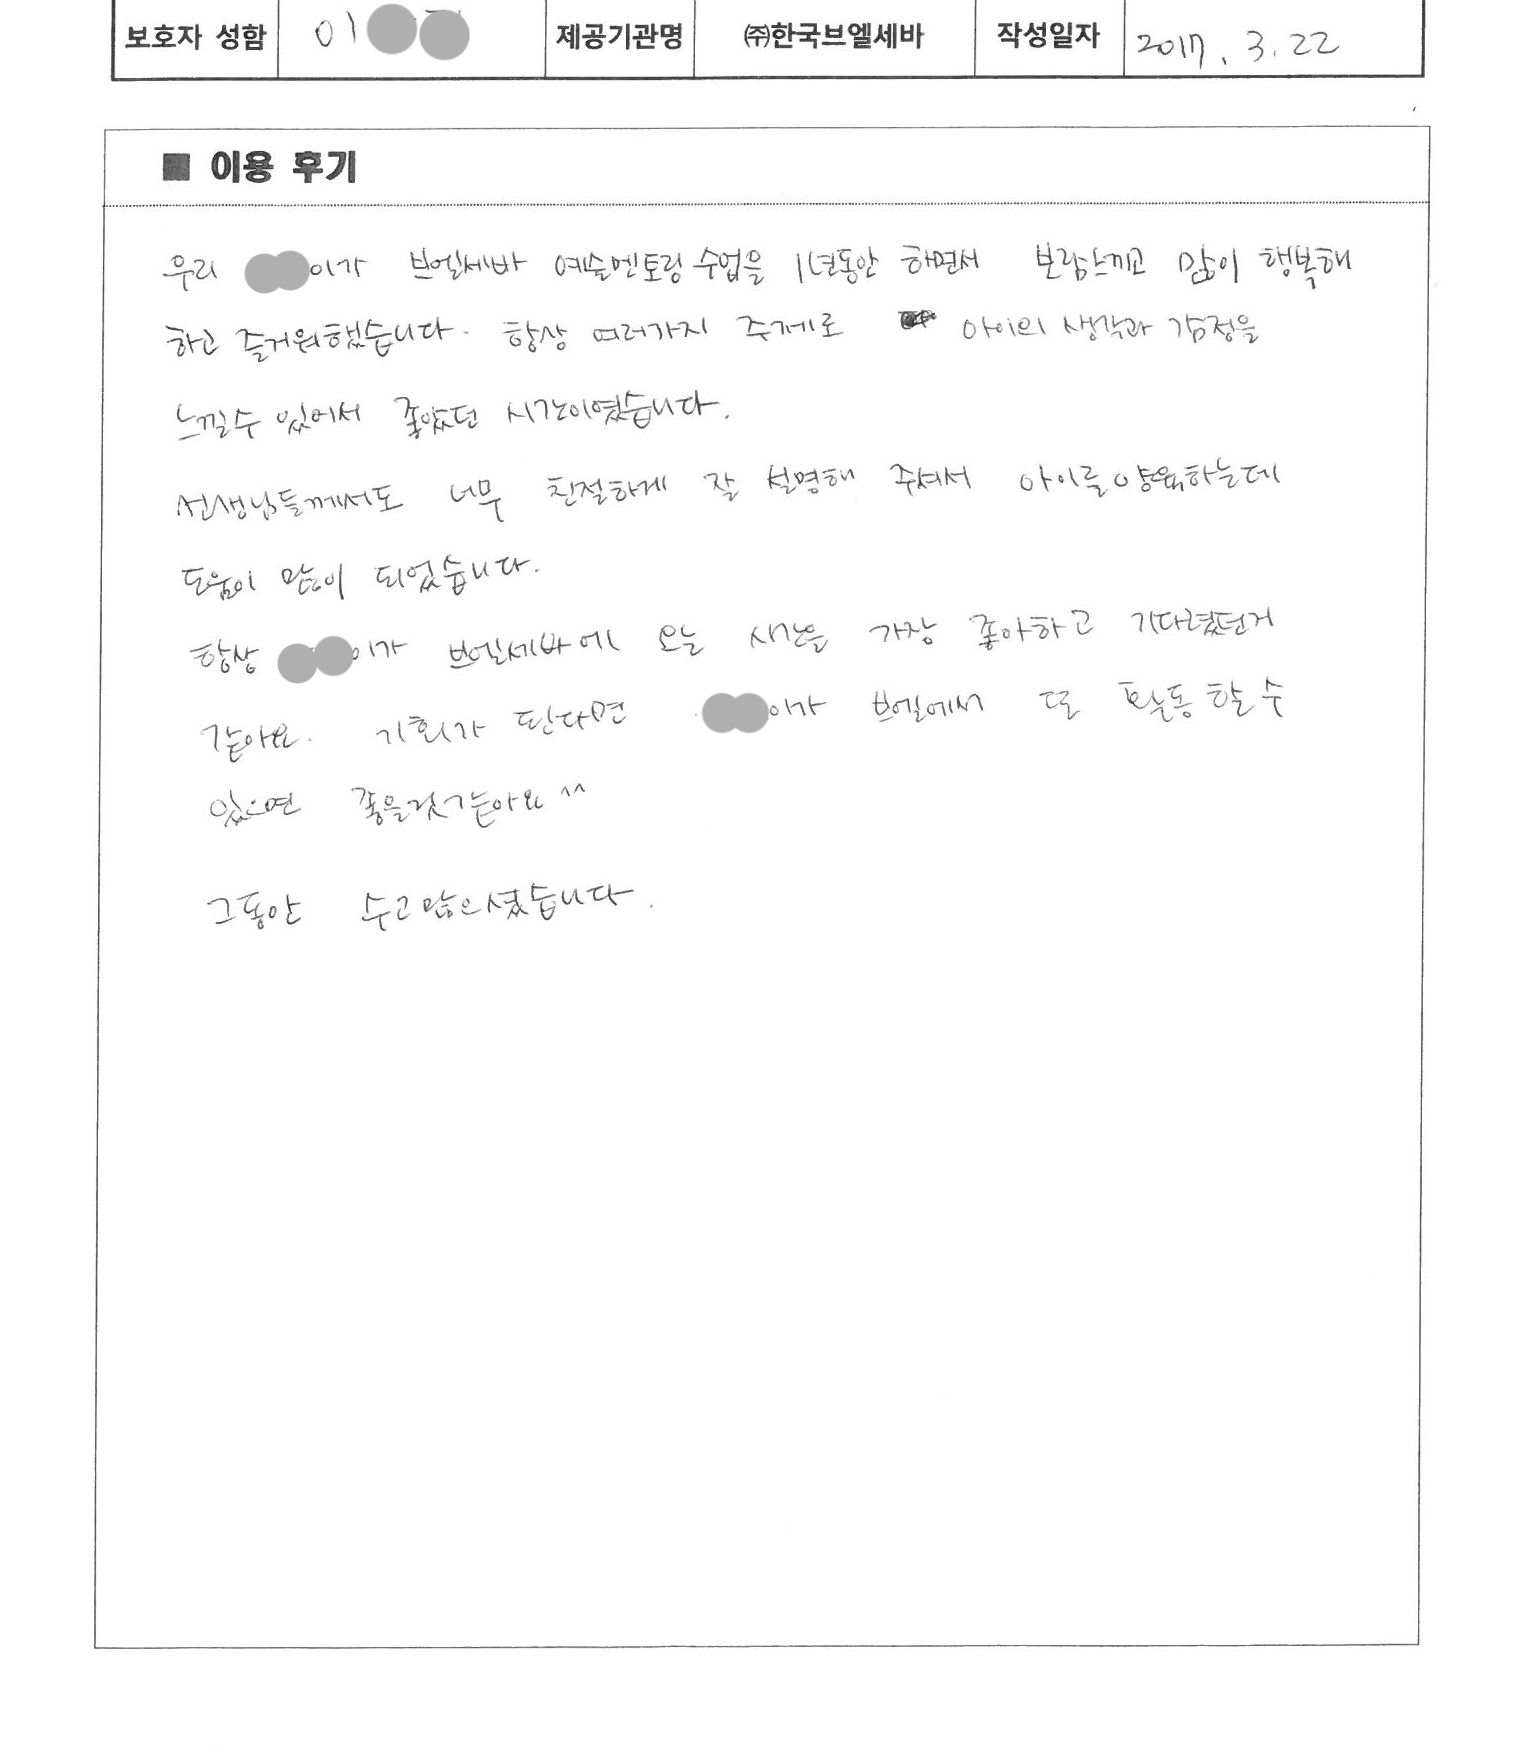 보호자 성함 이 제공기관명 ㈜한국브엘세바 작성일자 2017. 3. 22
■ 이용 후기
우리 이가 브엘세바 예술멘토링 수업을 1년동안 하면서 보람느끼고 많이 행복해
하고 즐거워했습니다. 항상 여러가지 주제로 아이의 생각과 감정을
느낄수 있어서 좋았던 시간이였습니다.
선생님들께서도 너무 친절하게 잘 설명해 주셔서 아이를 양육하는데
도움이 많이 되었습니다.
항상 이가 브엘세바에 오는 시간을 가장 좋아하고 기다렸던거
같아요. 기회가 된다면 이가 브엘에서 또 활동할 수
있으면 좋을것같아요 ^^
그동안 수고많으셨습니다.